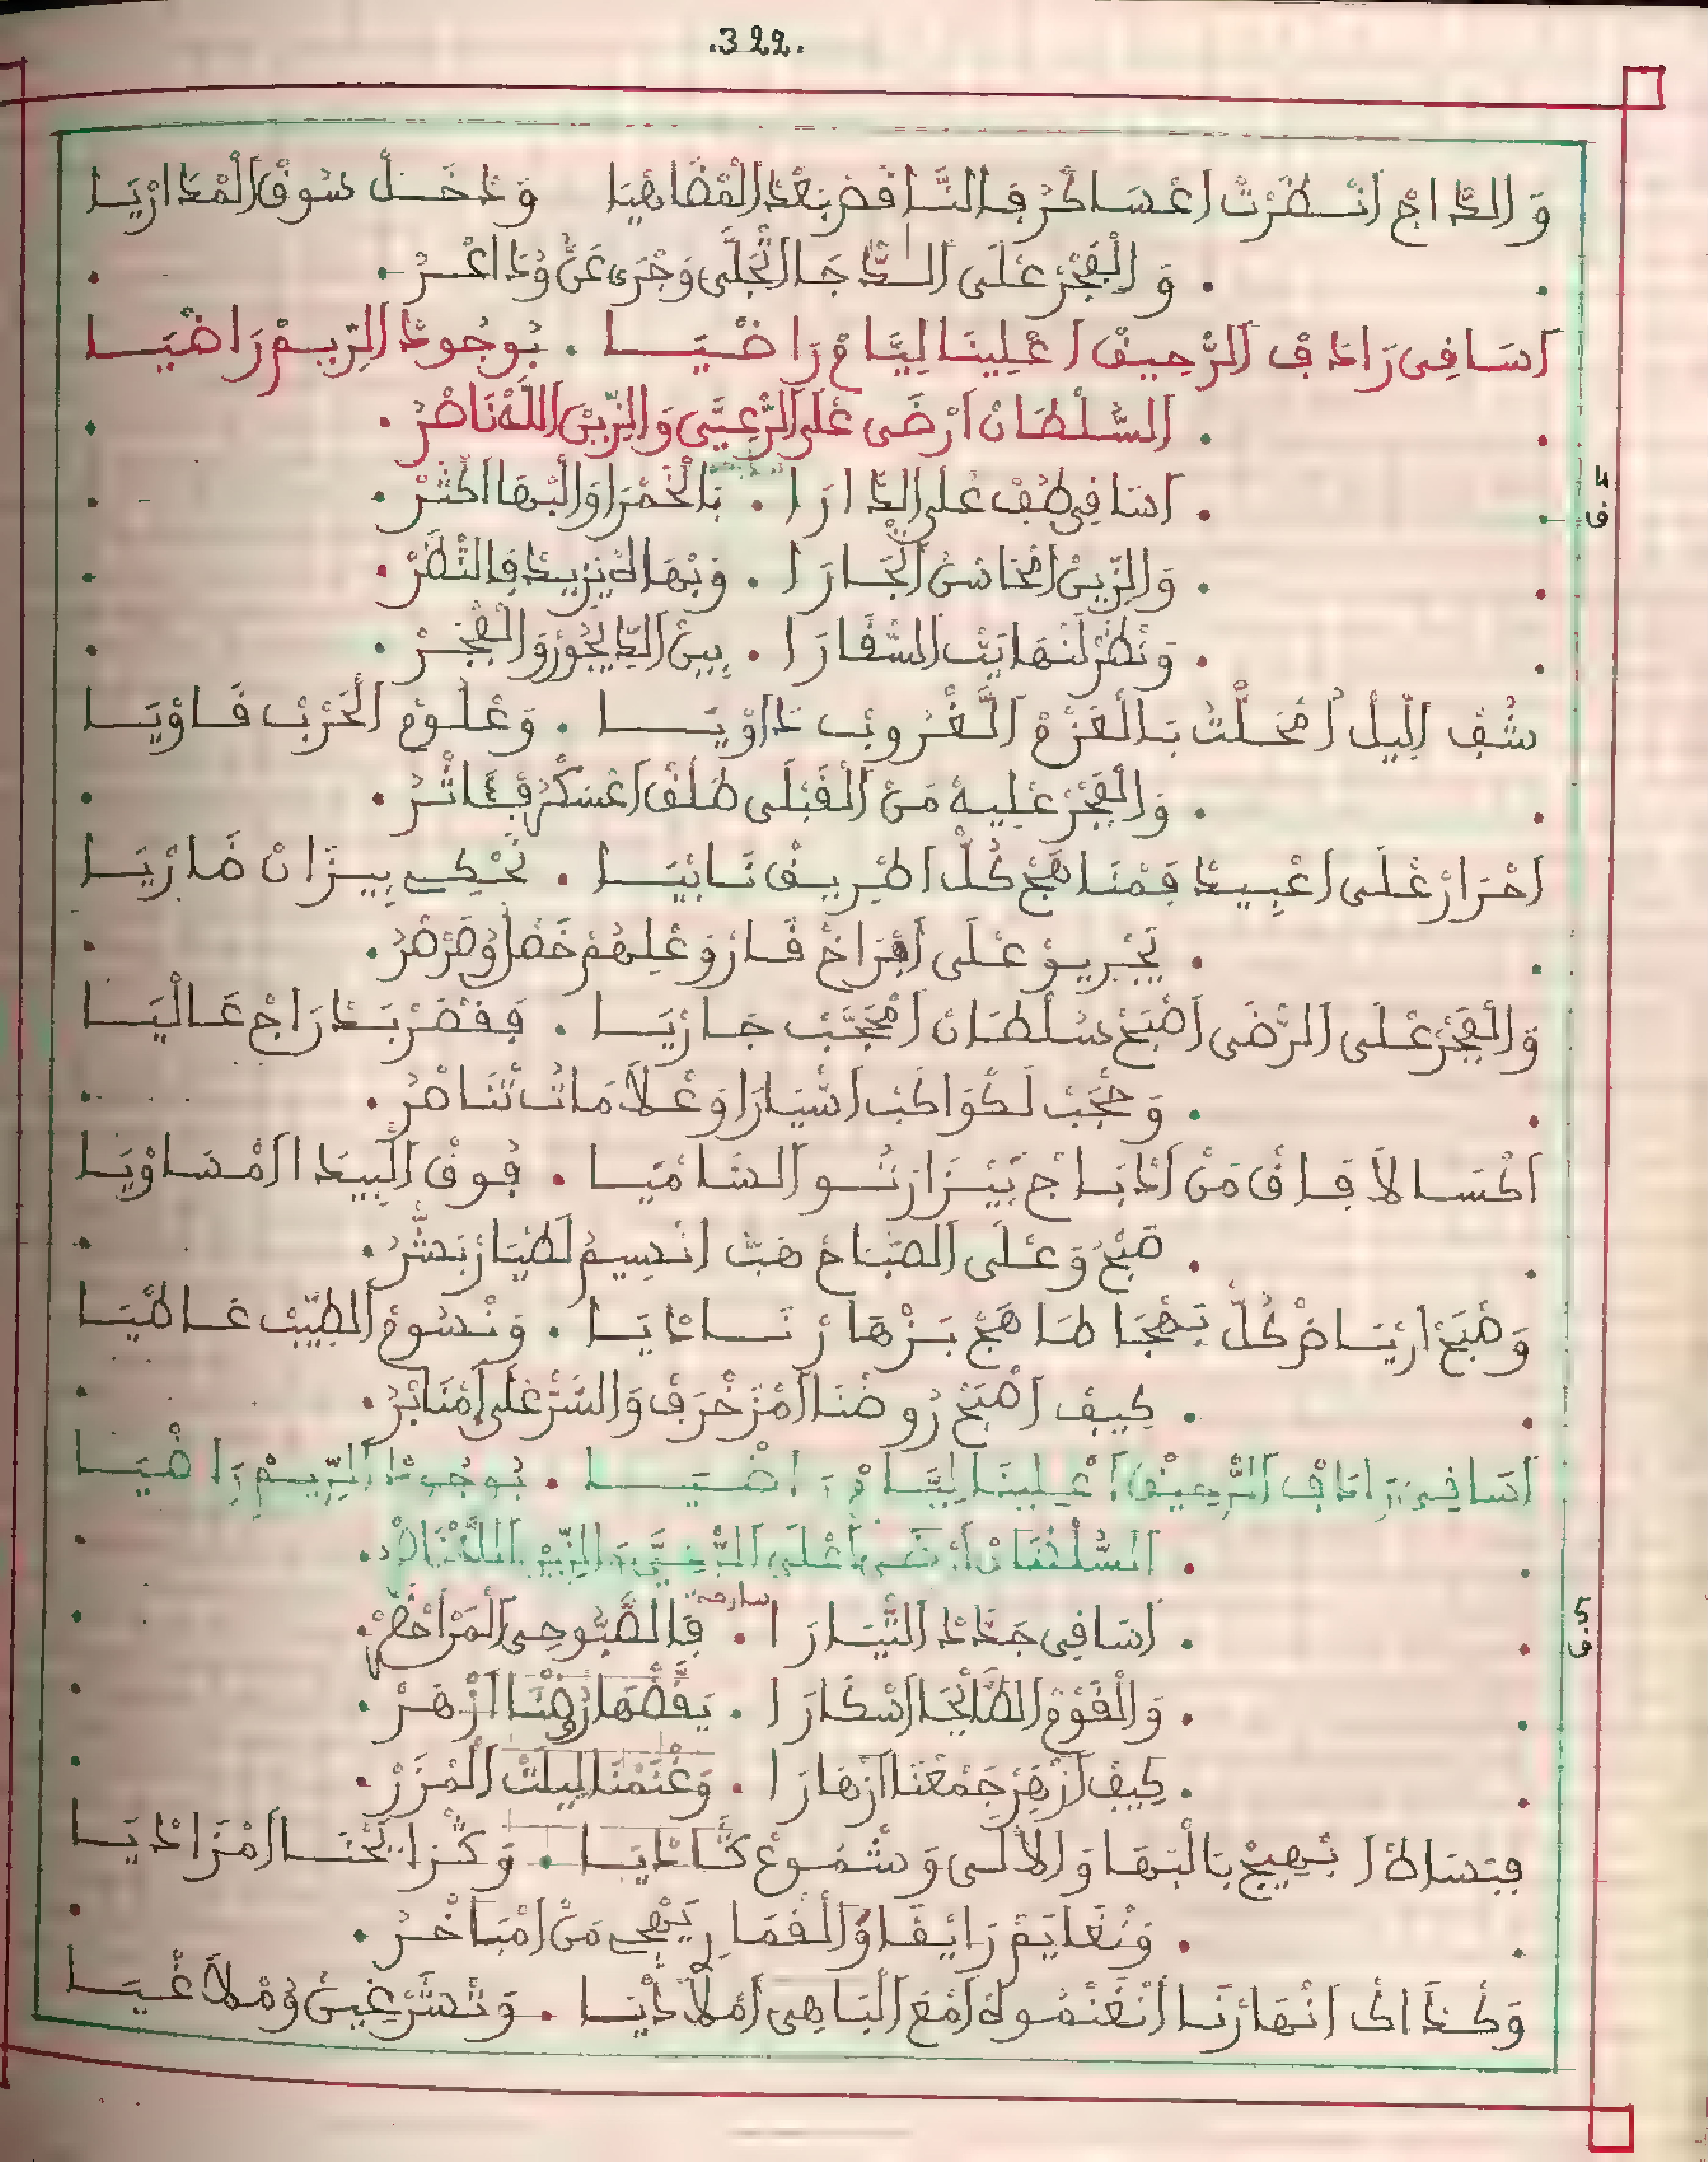 .322.
وَالدَّاجْ اَنْطَرْتْ اعْسَاكْرُ فِالنَّاقَضْ بَعْدْ الْمْضَاهْيَا وَدْخَلْ سُوقْ الْمْدَارْيَا
. وَالْفْجَرْ عْلَى الدّْجَا اتْجَلَّى وَجْرَى عَنُّ وُدَاعْرُ .
اَسَاقِى رَادَفْ الرّْحِيقْ اعْلِينَا لِيَّامْ رَاضْيَا . بُوجُودْ الرِّيمْ رَاضْيَا
. السَّلْطَانْ اَرْضَى عْلَى الرّْعِيَّى وَالزِّينْ اللَّهْ نَاصْرُ .
4 ف
. اَسَاقِى طُفْ عْلَى الدَّارَا . بَالْخَمْرَا وَالْبْهَا اكْثَرْ .
. وَالزِّينْ امْحَاسْنُ اجْهَارَا . وَبْهَاهْ يْزِيدْ فِالنّْظَرْ .
. وَنْظُرْ لَنْهَايَتْ السّْفَارَا . بِينْ الدِّيجُورْ وَالْفْجَرْ .
شُفْ اللِّيلْ امْحَلّْتُ بَالْعَزْمْ الْغْرُوبْ دَاوْيَا . وَعْلُومْ الْحَرْبْ قَاوْيَا
. وَالْفْجَرْ عْلِيهْ مَنْ الْقَبْلَى طَلْقْ اعْسَكْرُ فِئَاتْرُ .
اَحْرَارْ عْلَى اعْبِيدْ فَمْنَاهَجْ كُلّْ اطْرِيفْ نَابْيَا . تَحْكِى بِيزَانْ ضَارْيَا
. يَجْرِيوْ عْلَى افْرَاخْ قَارْ وَعْلِهُمْ خَصْلُ وُصَرْصْرُ .
وَالْفْجَرْ عْلَى الرّْضَى اصْبَحْ سُلْطَانْ امْحَجَّبْ جَارْيَا . فَقْصَرْ بَدْرَاجْ عَالْيَا
. وَحْجَبْ لَكْوَاكَبْ السّْيَارَا وَعْلاَمَاتْ تَّنَاصْرُ .
اَكْسَا لاَفَاقْ مَنْ الدّْبَاجْ بَيْزَارْتُو السَّامْيَا . فُوقْ الْبِيدَا الْمْسَاوْيَا
. صَبْحُ وَعْلَى الصْبَاحْ هَبّْ انْسِيمُ لَطْيَارْ بَشّْرُ .
وَصْبَحْ ارْيَاضْ كُلّْ بَهْجَا طَاهَجْ بَزْهَارْ نَادْيَا . وَنْسُومْ الطِّيبْ غَاطْيَا
. كِيفْ اصْبَحْ رُوضْنَا امْزَخْرَفْ وَالسَّرّْ عْلَى امْنَابْرُ .
اَسَاقِى رَادَفْ الرّْحِيقْ اعْلِينَا لِيَّامْ رَاضْيَا . بُوجُودْ الرِّيمْ رَاضْيَا
. السَّلْطَانْ اَرْضَى اعْلَى الرّْعِيَّى وَالزِّينْ اللَّهْ نَاصْرُ .
5 ف
. اَسَاقِى جَدَّدْ التّْيَارَا . فِالصّْبُوحِى الْمْرَاحْ .
. وَالْقَوْمْ الطَّايْحَا اسْكَارَا . يَقّْضْهَا رُوضْنَا ازْهَرْ .
. كِيفْ ازْهَرْ جَمْعْنَا ازْهَارَا . وَغْنَمْنَا لِيلَتْ الْمْزَرْ .
فِبْسَاطْ ابْهِيجْ بَالْبْهَا وَالاَلَى وَشْمُوعْ كَّادْيَا . وَكْزَا يَحْنَا امْزَادْيَا
. وَنْغَايَمْ رَايْقَا وَالْقْمَارِ يَبْهَجِ مَنْ امْبَاخْرُ .
وَكْذَاكْ انْهَارْنَا انْغَنْمُوهْ امْعَ الْبَاهِى امْلاَدْيَا . وَنْسَرّْ غِينْ وُمْلاَغْيَا